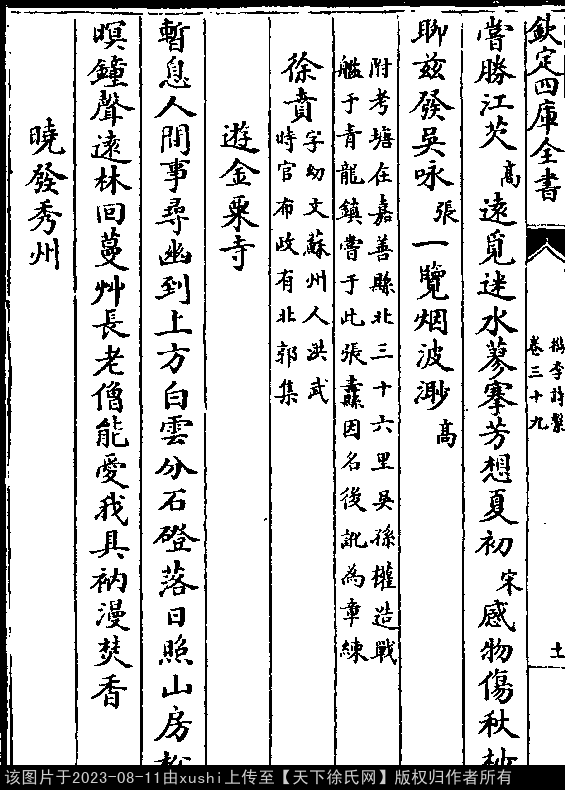 欽定四庫全書
檇李詩繫
卷三十九
土
嘗勝江茭高遠覓迷水蓼搴芳想夏初宋感物傷秋杪
聊兹發吳咏張一覽烟波渺髙
附考塘在嘉善縣北三十六里吳孫權造戰
艦于青龍鎮嘗于此張纛因名後訛為章練
徐賁字幼文蘇州人洪武
時官布政有北郭集
遊金粟寺
暫息人間事尋幽到上方白雲分石磴落日照山房松
暝鐘聲遠林回蔓艸長老僧能愛我具衲漫焚香
曉發秀州
该图片于2023-08-11由xushi上传至【天下徐氏网】版权归作者所有